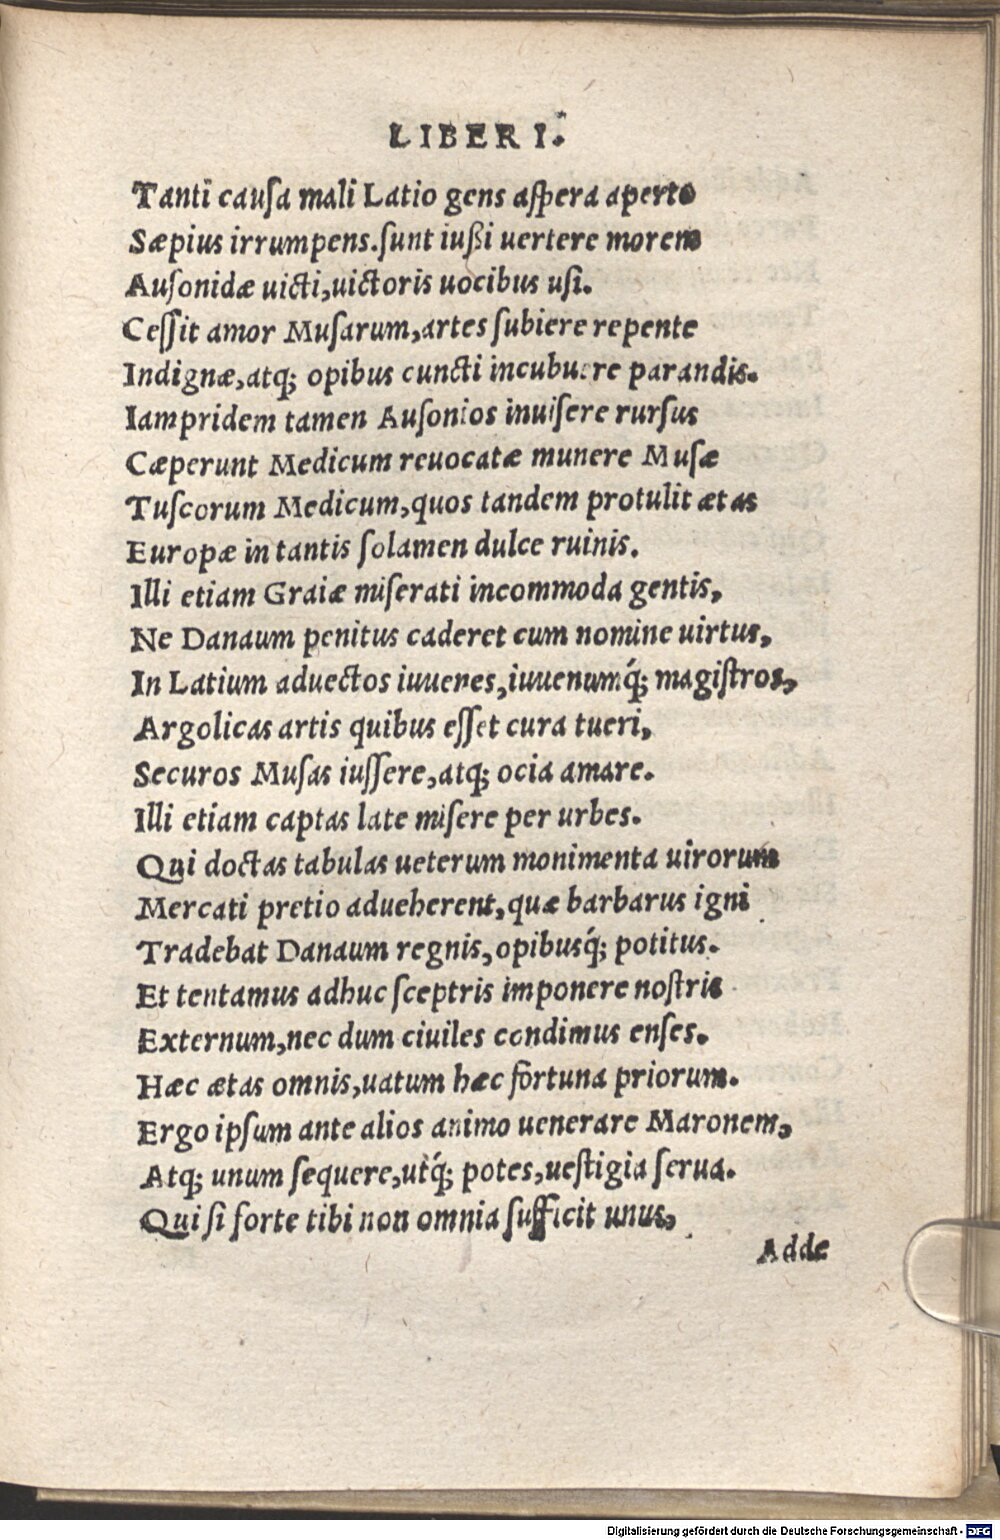 LIBER I.
Tanti causa mali Latio gens aspera aperto
Sæpius irrumpens.sunt iußi uertere morem
Ausonidæ uicti,uictoris uocibus usi.
Cessit amor Musarum,artes subiere repente
Indignæ,atq; opibus cuncti incubuere parandis.
Iampridem tamen Ausonios inuisere rursus
Cæperunt Medicum reuocatæ munere Musæ
Tuscorum Medicum,quos tandem protulit ætas
Europæ in tantis solamen dulce ruinis.
Illi etiam Graiæ miserati incommoda gentis,
Ne Danaum penitus caderet cum nomine uirtus,
In Latium aduectos iuuenes,iuuenumq́; magistros,
Argolicas artis quibus esset cura tueri,
Securos Musas iussere,atq; ocia amare.
Illi etiam captas late misere per urbes.
Qui doctas tabulas ueterum monimenta uirorum
Mercati pretio adueherent,quæ barbarus igni
Tradebat Danaum regnis,opibusq́; potitus.
Et tentamus adhuc sceptris imponere nostris
Externum,nec dum ciuiles condimus enses.
Hæc ætas omnis,uatum hæc fortuna priorum.
Ergo ipsum ante alios animo uenerare Maronem,
Atq; unum sequere,utq́; potes,uestigia serua.
Qui si forte tibi non omnia sufficit unus,
Adde
Digitalisierung gefördert durch die Deutsche Forschungsgemeinschaft - DFG